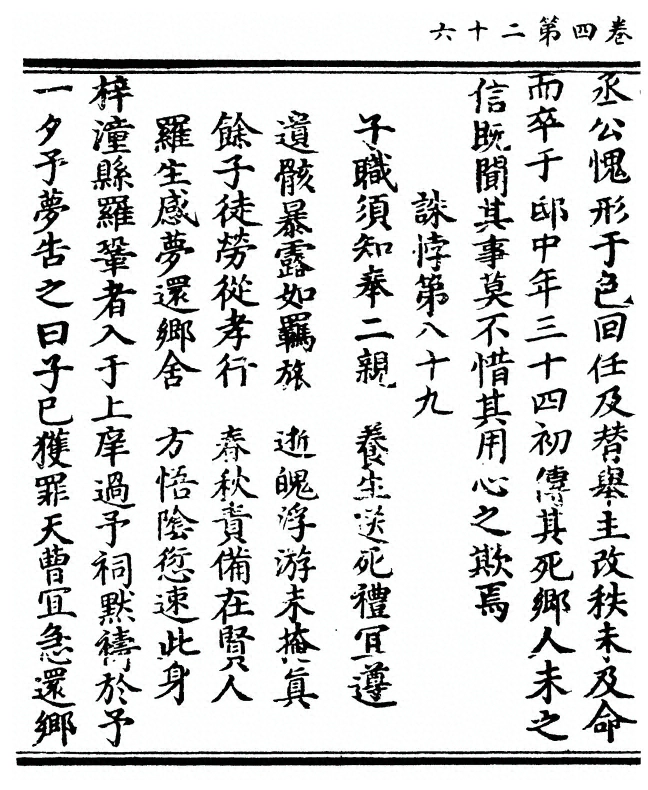 卷四第二十六
丞公愧形于色回任及替舉主改秩未及命
而卒于邸中年三十四初傳其死鄉人未之
信既聞其事莫不惜其用心之欺焉
誅悖第八十九
子職須知奉二親　養生送死禮宜遵
遺骸暴露如羈旅　逝魄浮游未掩真
餘子徒勞從孝行　春秋責備在賢人
羅生感夢還鄉舍　方悟陰愆速此身
梓潼縣羅鞏者入于上庠過予祠默禱於予
一夕予夢告之曰子已獲罪天曹宜急還鄉